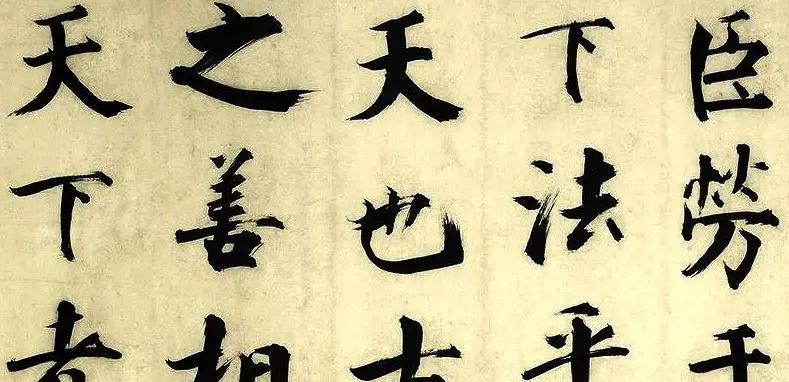 臣勞于
下法乎
天也古
之善相
天下者